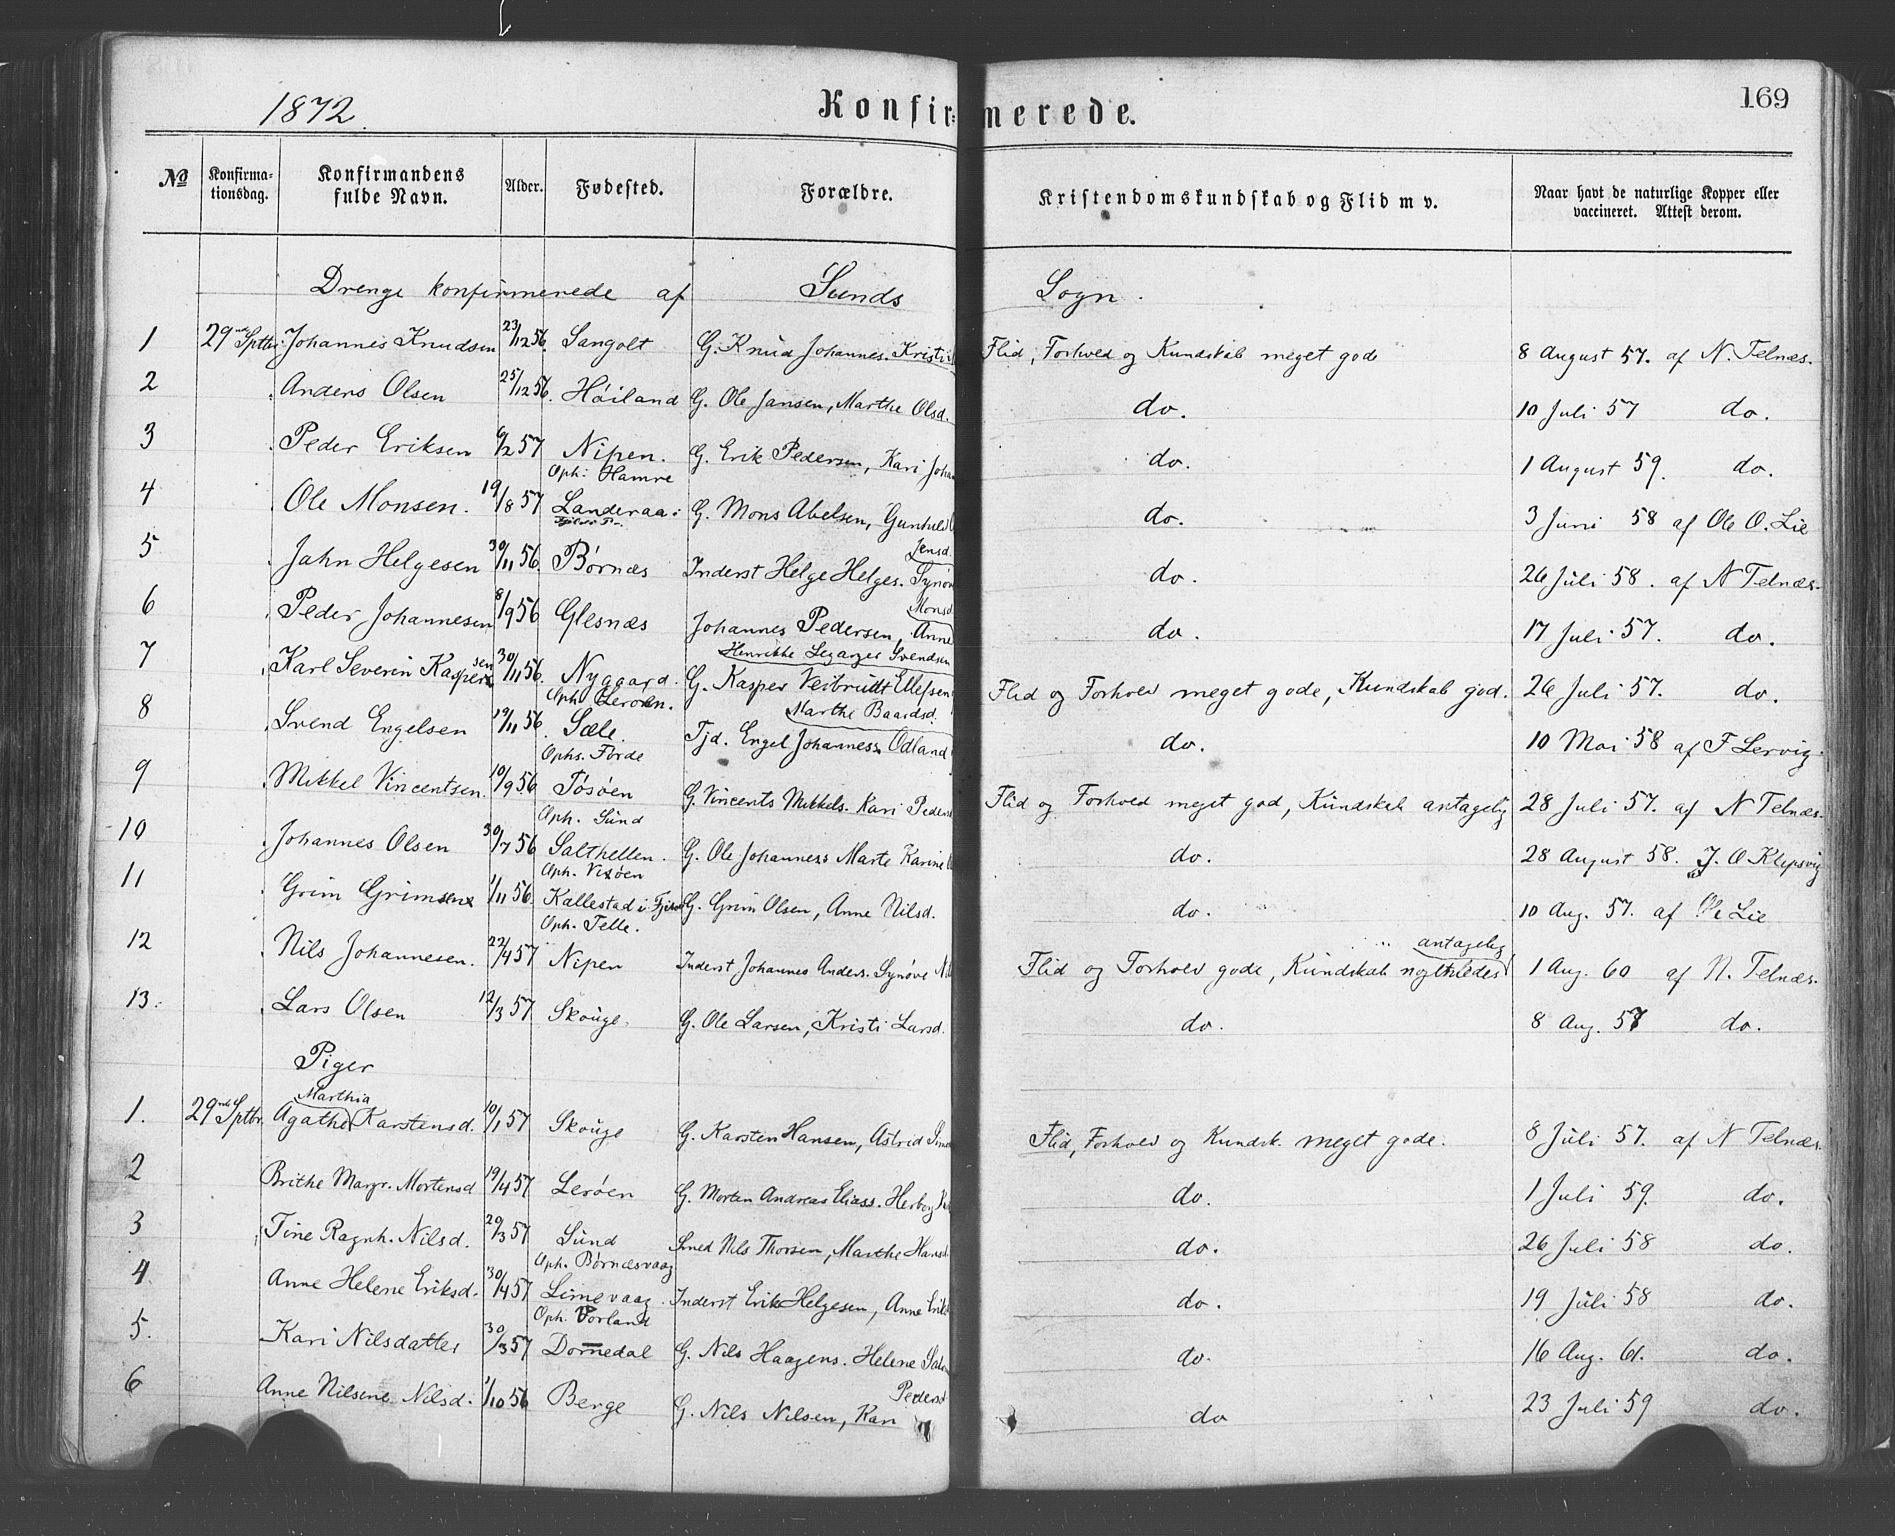 1872. Konfirmerede. 169
№ Konfirmationsdag. Konfirmandens fulde Navn. Alder. Fødested. Forældre. Kristendomskundskab og Flid m v. Naar havt de naturlige Kopper eller vaccineret. Attest derom.
Drenge konfirmerede af Sunds Sogn.
1 29 Sptbr. Johannes Knudsen 23/12 56. Sangolt G. Knud Johannes. Flid, Forhold og Kundskab meget gode 8 August 57. af N. Telnæs.
2 Anders Olsen 25/12 56. Høiland G. Ole Jansen, Marthe Olsd. do. 10 Juli 57 do.
3 Peder Eriksen 6/2 57 Nipen. G. Erik Pedersen, Kari do. 1 August 59. do.
Oph: Hamre
4 Ole Monsen. 19/8 57 Landeraa G. Mons Abelsen, do. 3 Juni 58 af Ole O. Lie
Jensd.
5 Jahn Helgesen 30/11 56. Børnæs Inderst Helge Helges. do. 26 Juli 58. af N Telnæs.
Monsd.
6 Peder Johannesen 8/9 56 Glesnæs Johannes Pedersen, Anne do. 17 Juli 57. do.
Henrikke Svendsen
7 Karl Severin Kaspersen 30/11 56. Nygaard. G. Kasper Ellefsen Flid og Forhold meget gode, Kundskab god. 26 Juli 57. do.
Oph. Lerøen. Marthe Baardsd.
8 Svend Engelsen 19/11 56. Sæle. Tjd. Engel Johanness. Odland do. 10 Mai 58 af F Lervig.
Ophs. Førde
9 Mikkel Vincentsen. 10/9 56 Tøsøen G. Vincents Mikkels. Kari Flid og Forhold meget god, Kundskab antagelig 28 Juli 57. af N Telnæs.
Oph. Sund
10 Johannes Olsen 30/7 56 Salthellen. G. Ole Johanness Marte Karine do. 28 August 58. J. O Klepsvig
Oph. Vixøen
11 Grim Grimsen 1/11 56. Kallestad i G. Grim Olsen, Anne Nilsd. do. 10 Aug. 57. af Ole Lie
Oph. Telle.
antagelig
12 Nils Johannesen. 22/4 57 Nipen Inderst Johannes Anders. Synøve Flid og Forhold gode, Kundskab nogenledes 1 Aug. 60 af N. Telnæs.
13. Lars Olsen 12/3 57 Skouge. G. Ole Larsen, Kristi Larsd. do. 8 Aug. 57 do.
Piger
Marthia
1. 29 Sptbr. Agathe Karstensd. 10/1 57 Skouge G. Karsten Hansen, Astrid Flid, Forhold og Kundsk. meget gode. 8 Juli 57. af N Telnæs.
2 Brithe Margr. Mortensd 19/4 57 Lerøen G. Morten Andreas Eliass. Herborg do. 1 Juli 59. do.
3 Tine Ragnh. Nilsd. 29/3 57 Sund Smed Nils Thorsen, Marthe Hansd do. 26 Juli 58 do.
Oph. Børnæsvaag
4 Anne Helene Eriksd. 30/4 57 Limevaag Inderst Erik Helgesen, Anne do. 19 Juli 58 do.
Oph. Vorland
5. Kari Nilsdatter 30/3 57 Dommedal G. Nils Haagens. Helene do. 16 Aug. 61. do.
Pedersd
6 Anne Nilsine Nilsd. 1/10 56 Berge G. Nils Nilsen, Kari do 23 Juli 59 do.